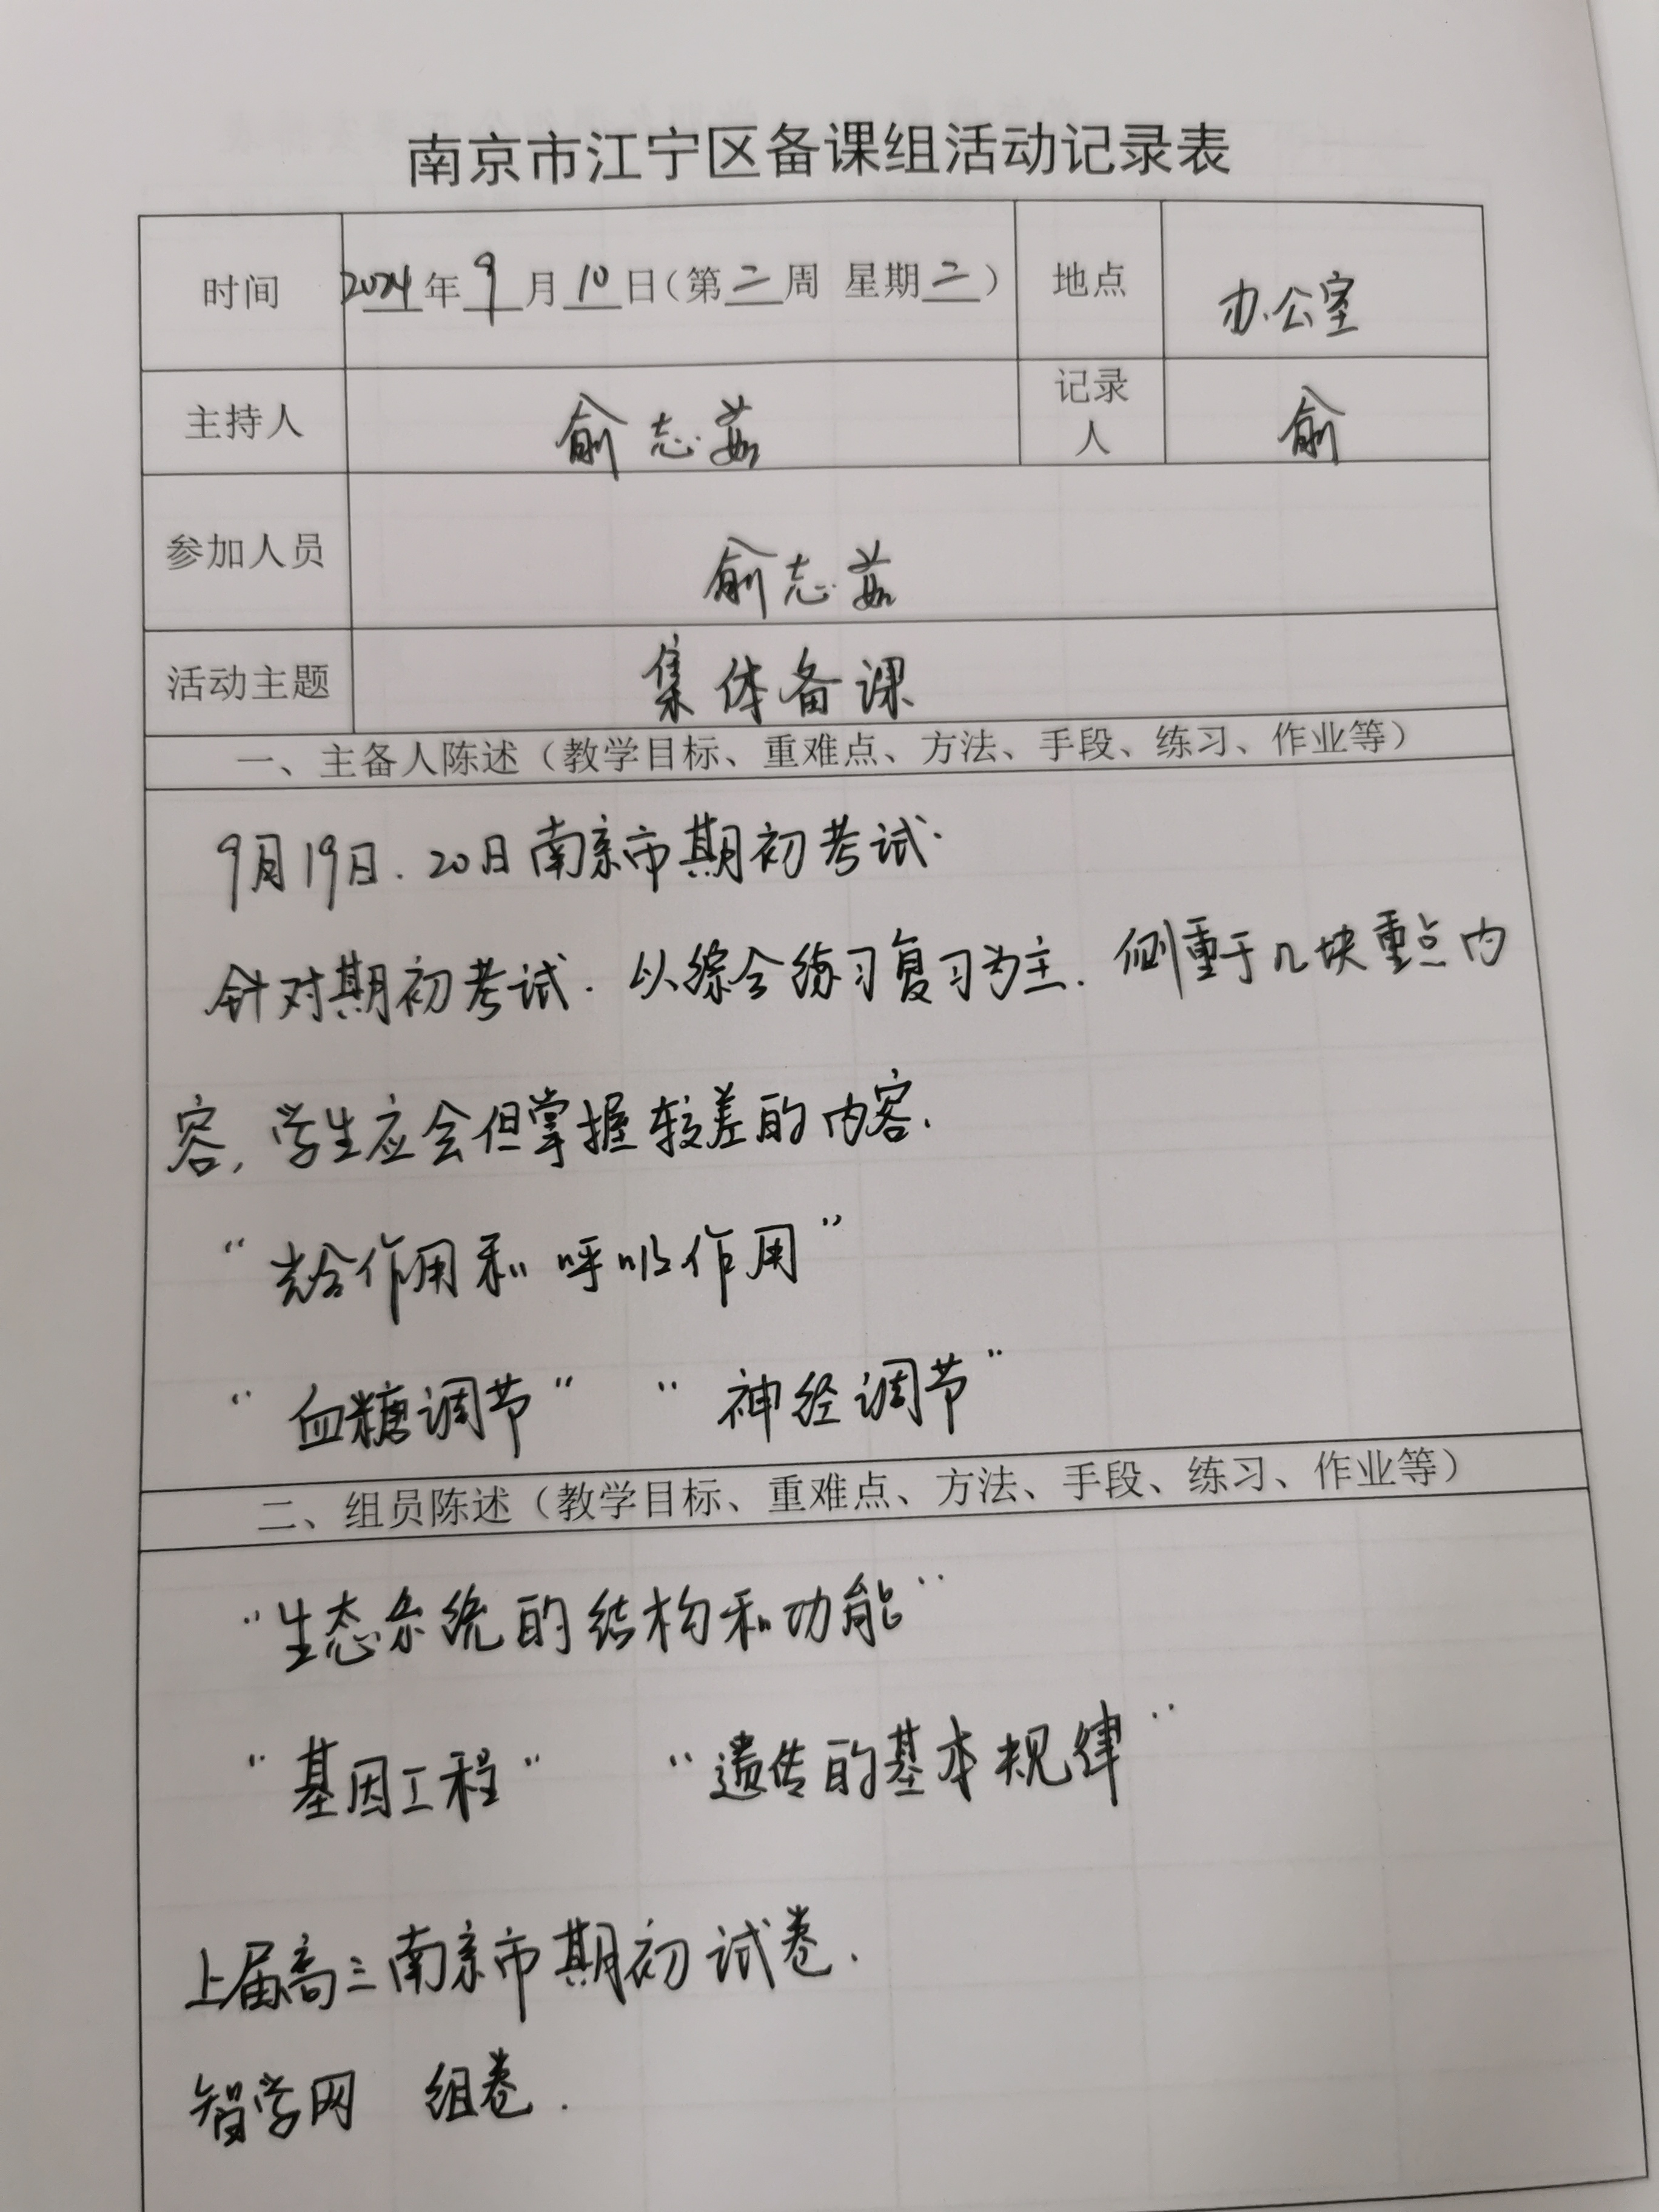 南京市江宁区备课组活动记录表
时间 2024年9月10日(第二周 星期二) 地点 办公室
主持人 俞志茹 记录人 俞
参加人员 俞志茹
活动主题 集体备课
一、主备人陈述（教学目标、重难点、方法、手段、练习、作业等）
9月19日.20日南京市期初考试.
针对期初考试.以综合练习复习为主.侧重于几块重点内
容,学生应会但掌握较差的内容.
“光合作用和呼吸作用”
“血糖调节” “神经调节”
二、组员陈述（教学目标、重难点、方法、手段、练习、作业等）
“生态系统的结构和功能”
“基因工程” “遗传的基本规律”
上届高三南京市期初试卷.
智学网 组卷.